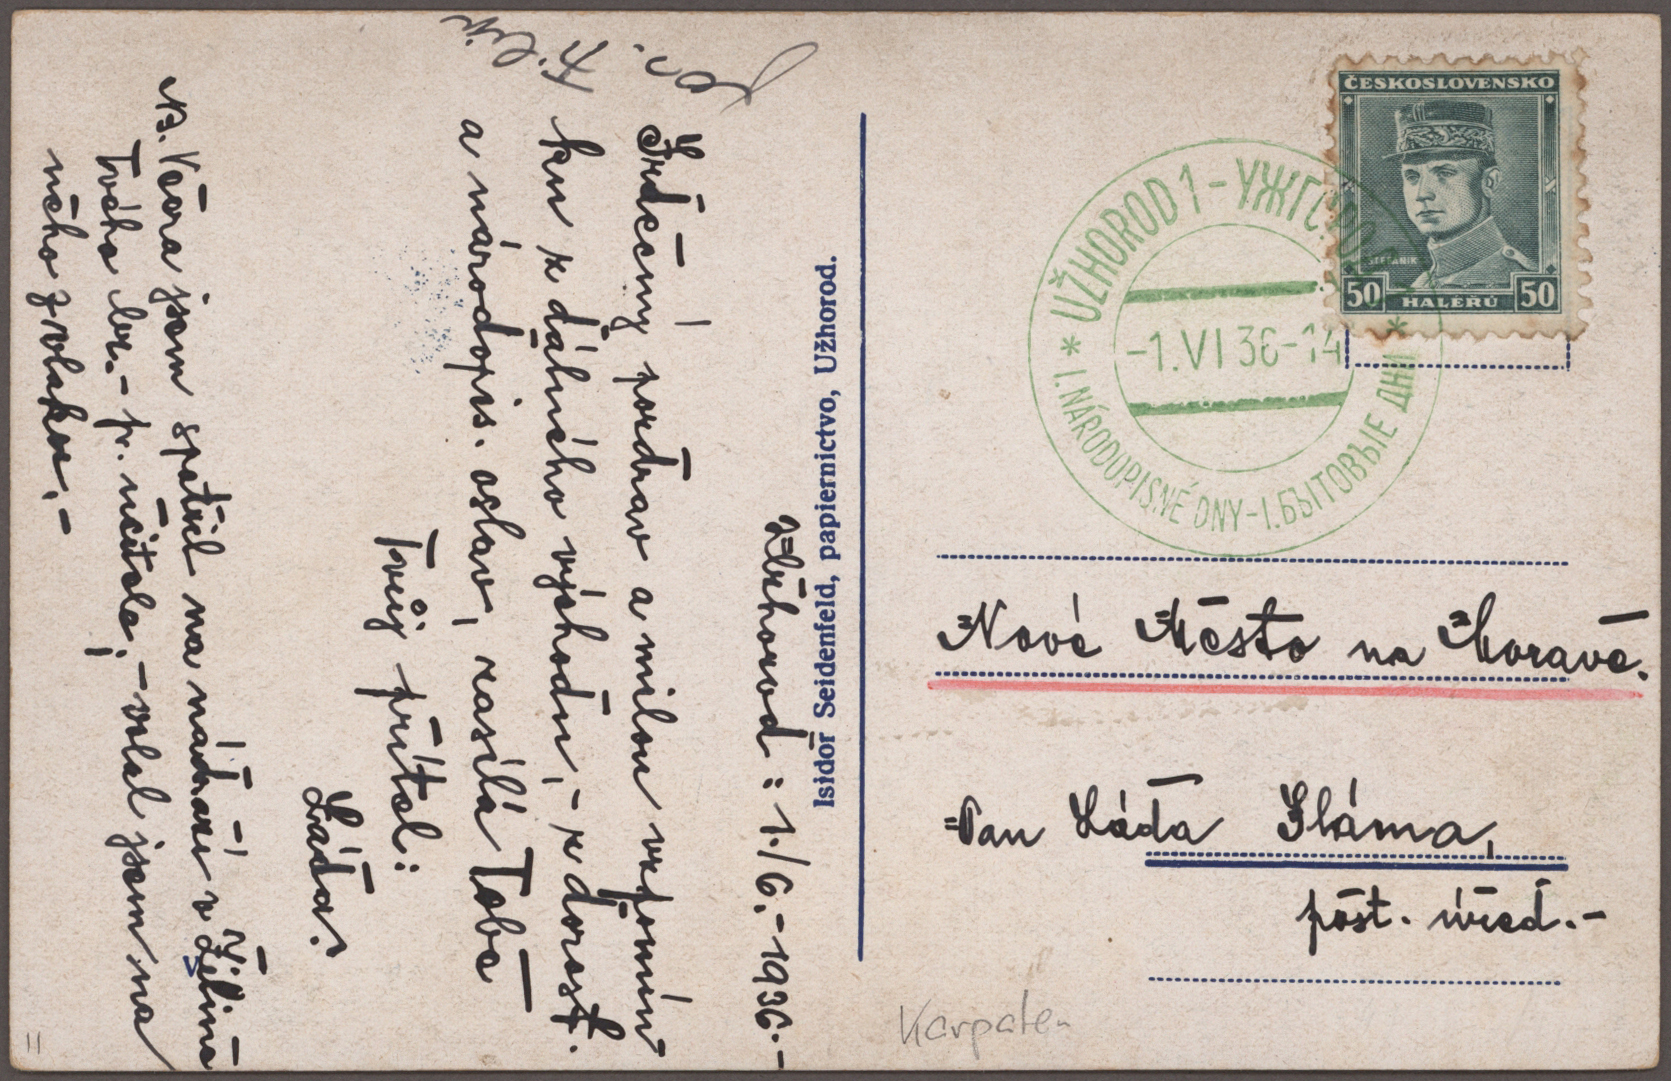 ČESKOSLOVENSKO
ŠTEFÁNIK
50 HALÉŘŮ 50
UŽHOROD 1 - УЖГОРОД
-1.VI 36-14
* I. NÁRODOPISNÉ DNY - I. БЫТОВЫЕ ДНИ *
Nové Město na Moravě.
Pan Láďa Sláma,
póšt. úřed.-
Karpaten
Isidor Seidenfeld, papiernictvo, Užhorod.
Užhorod: 1./6.-1936.-
Srdečný pozdrav a milou vzpomín
ku z dálného východu, - z dorost.
a národopis. oslav, zasílá Tobě
Tvůj přítel:
Láďa.
NB. Včera jsem spatřil na nádraží v Žilině
Tvého br. - p. učitele; - volal jsem na
něho z vlaku. -
11